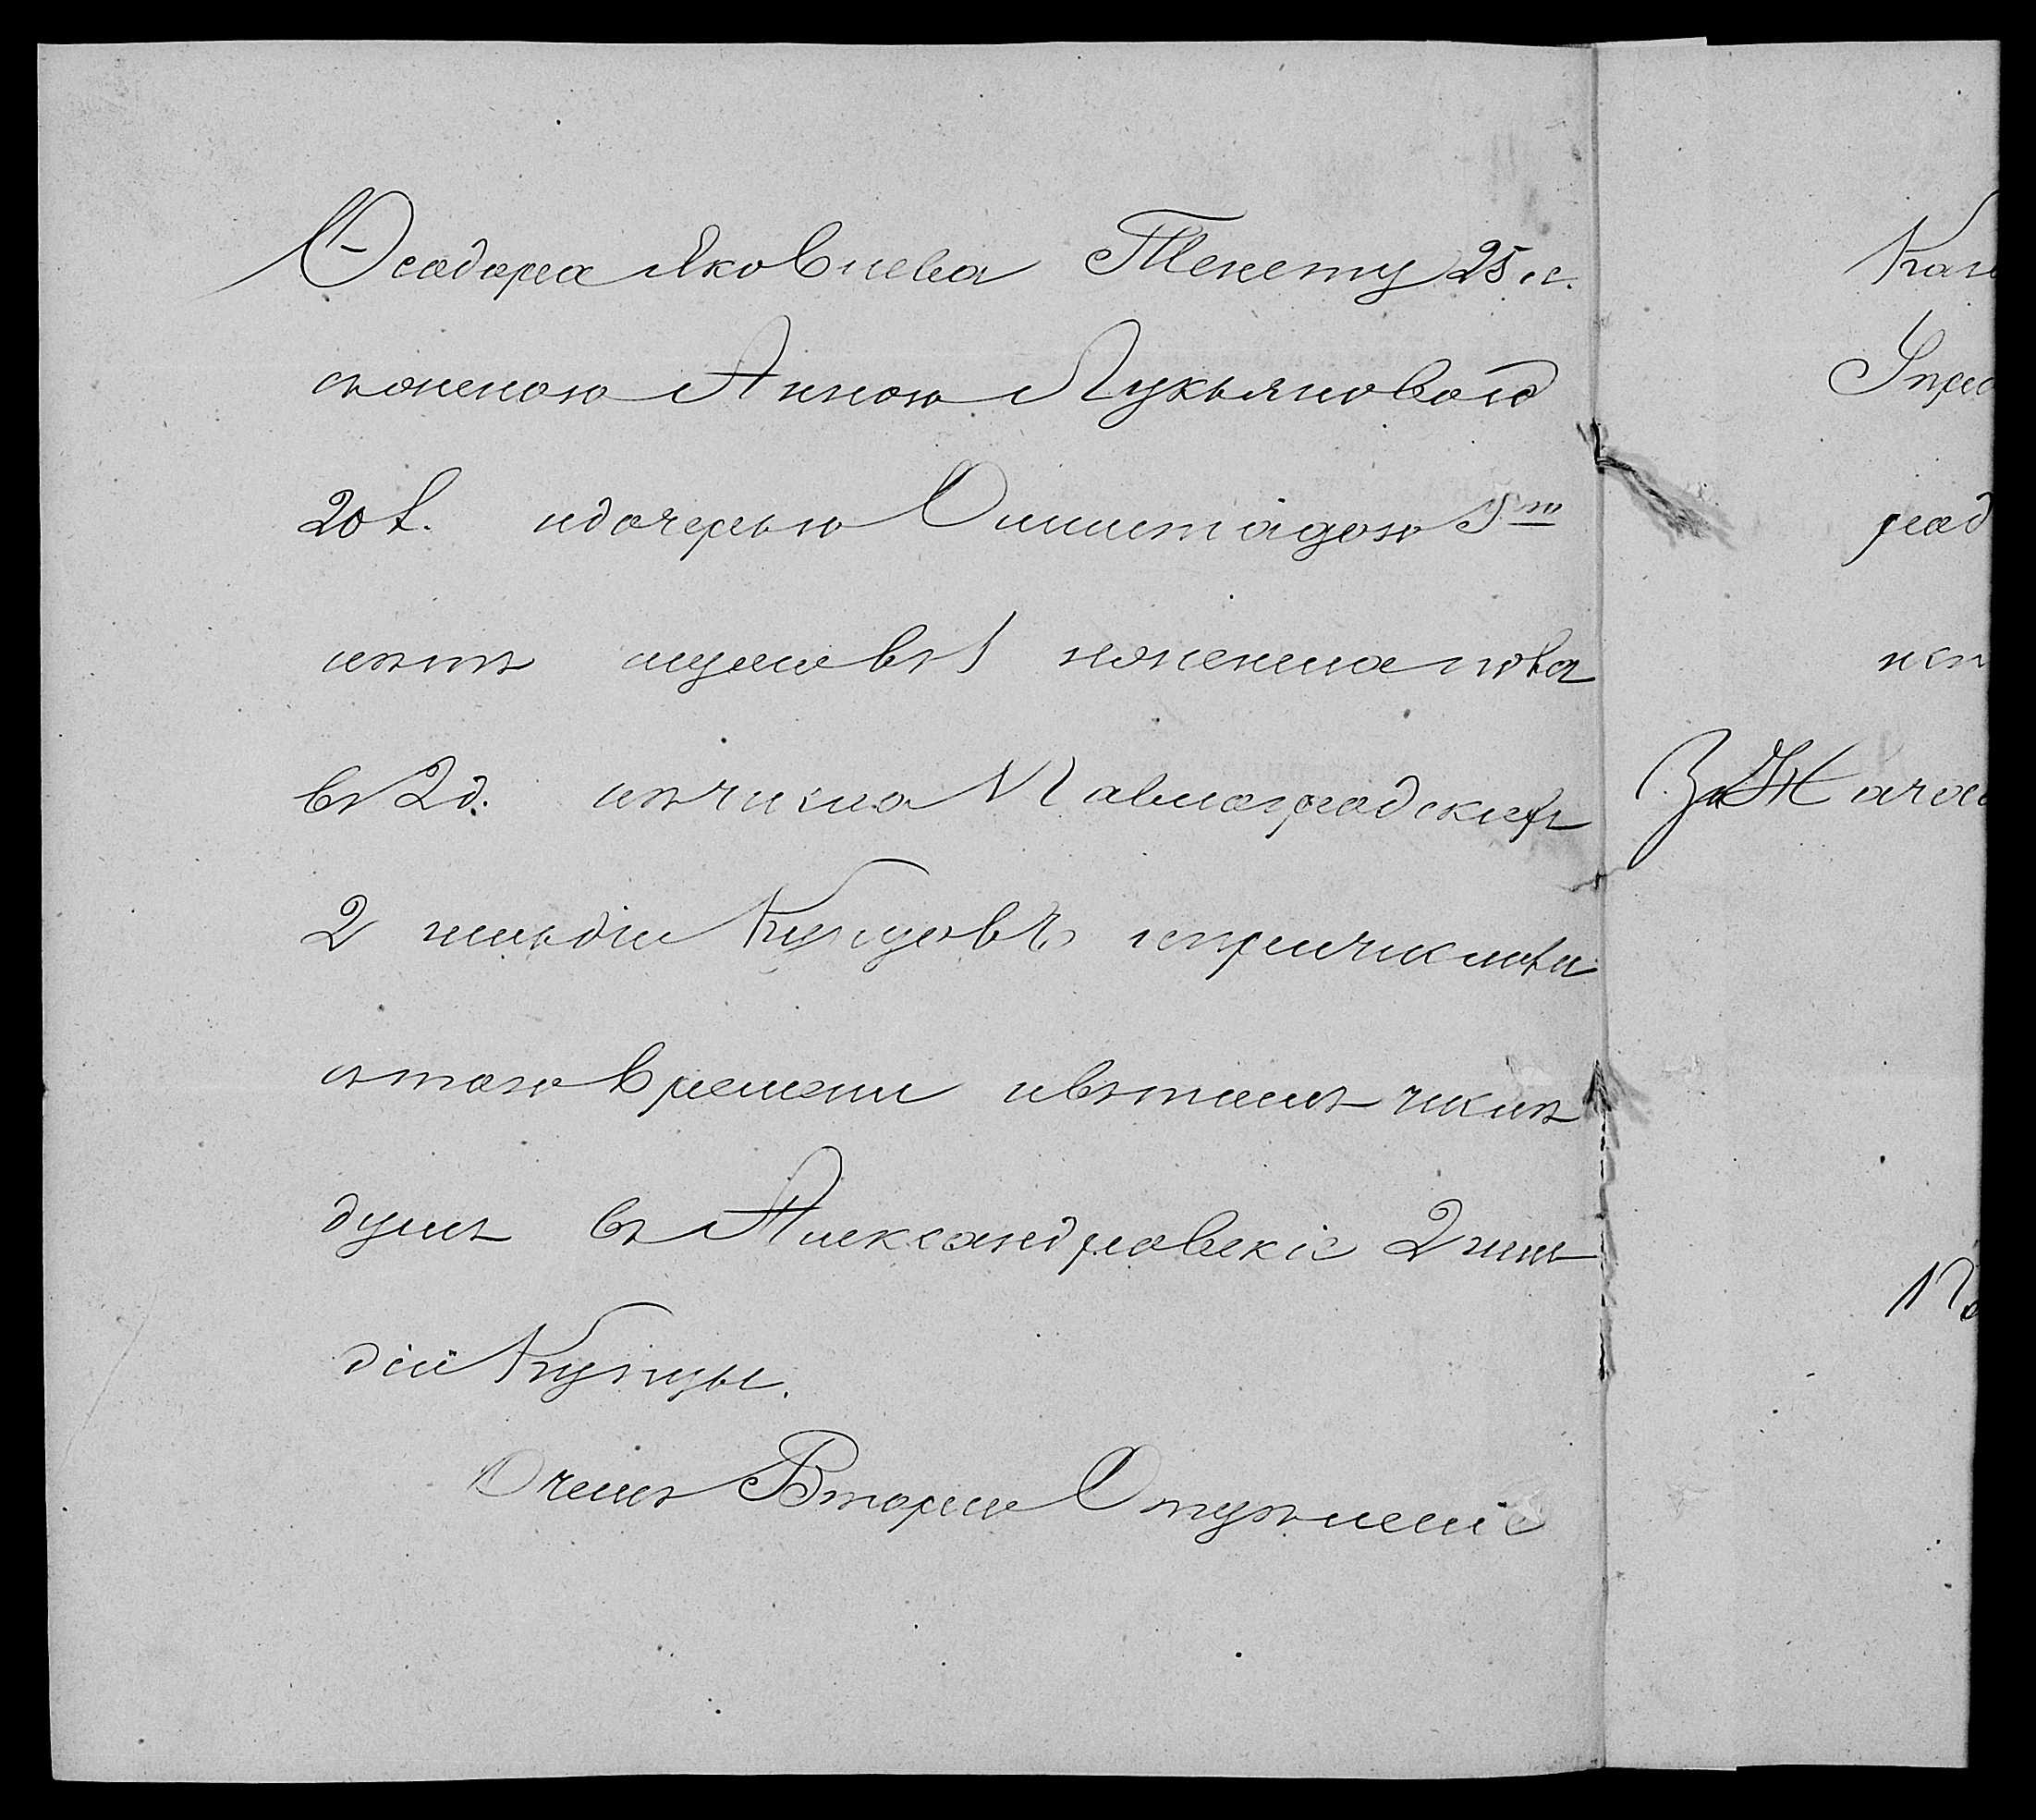 Ѳеодора Яковлева Текету 25 л.
съженою Анною Лукьяновою
20 л. идочерью Олимпіадою 5ти
лѣтъ мужевъ 1 иоженска пола
въ 2 д. изъчисла Павлоградскихъ
2 гильдіи Купцовъ ипричислить
стого времени ивътомъ числѣ
душъ въ Александровскіе 2 гиль
діи Купцы.
О чемъ Второе Отдѣленіе
Каз
рад
За Нача